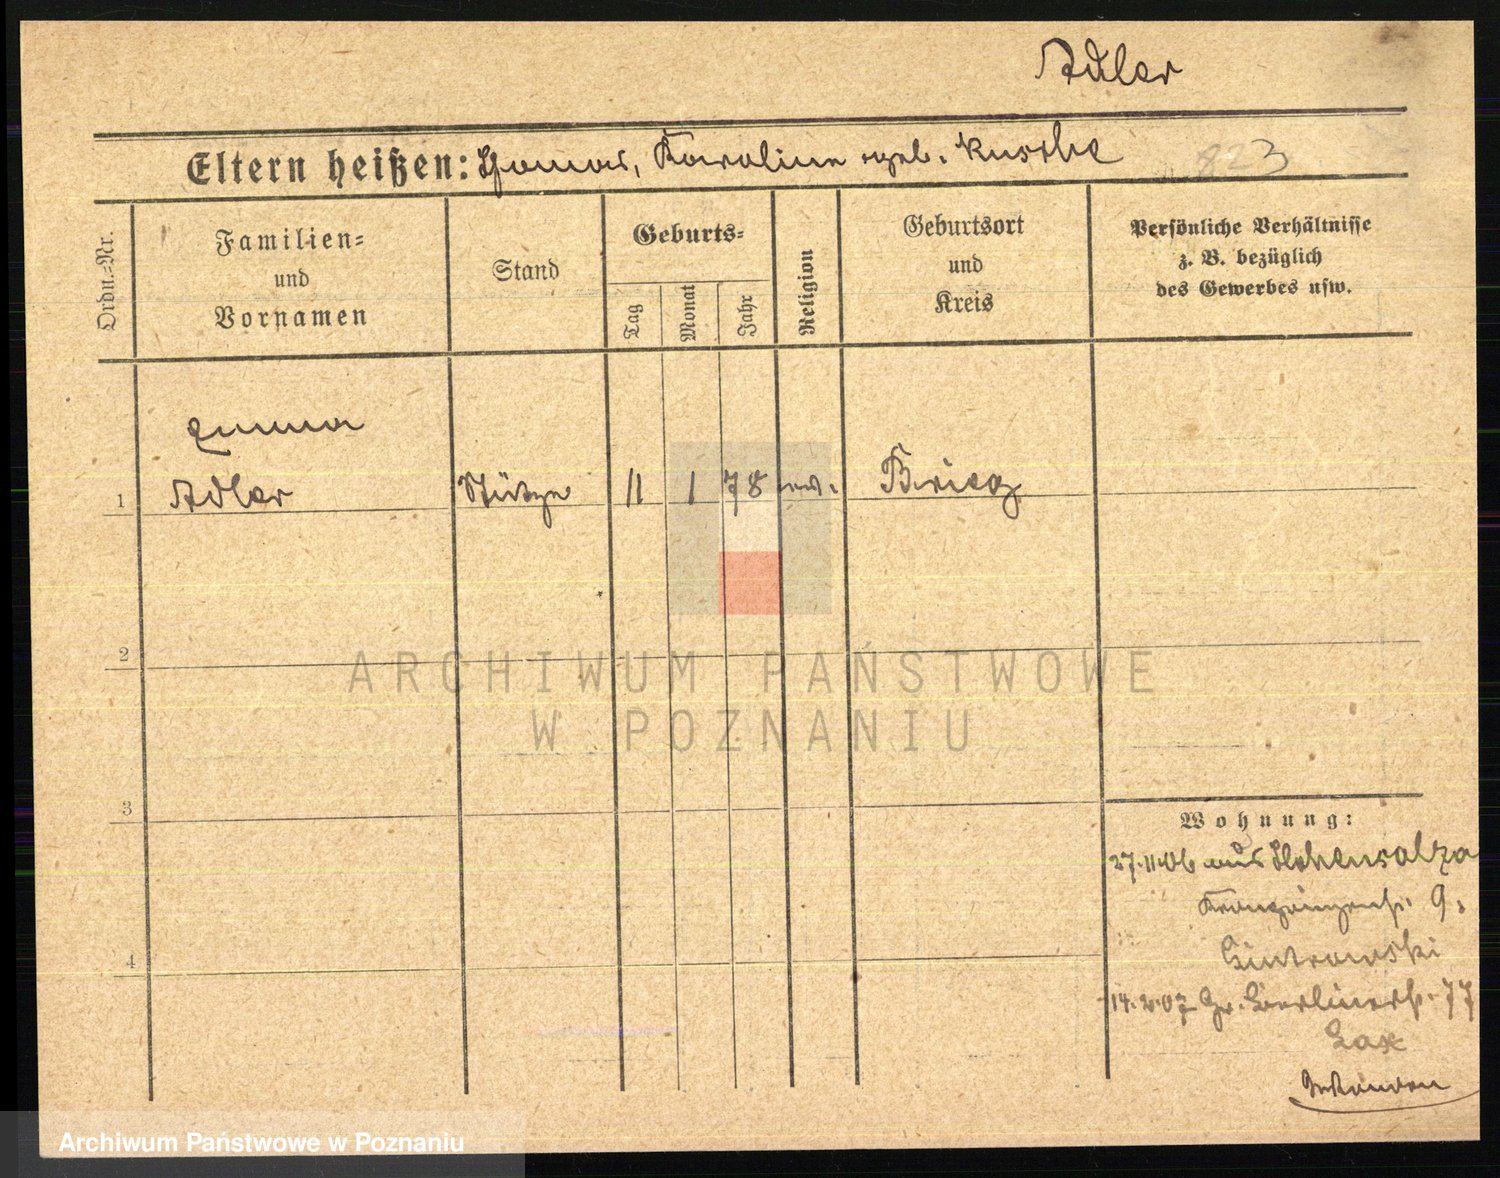 Adler
Eltern heißen: Thomas, Karoline geb. Kusche
823
Ordn.=Nr.
Familien=
und
Vornamen
Stand
Geburts=
Tag
Monat
Jahr
Religion
Geburtsort
und
Kreis
Persönliche Verhältnisse
z. B. bezüglich
des Gewerbes usw.
Emma
1 Adler Stütze 11 1 78 ev. Brieg
2
ARCHIWUM PAŃSTWOWE
W POZNANIU
3
Wohnung:
27.11.06 aus Hohensalza
Kronprinzenstr. 9,
4
14.2.07 Gr. Berlinerstr. 77
Archiwum Państwowe w Poznaniu